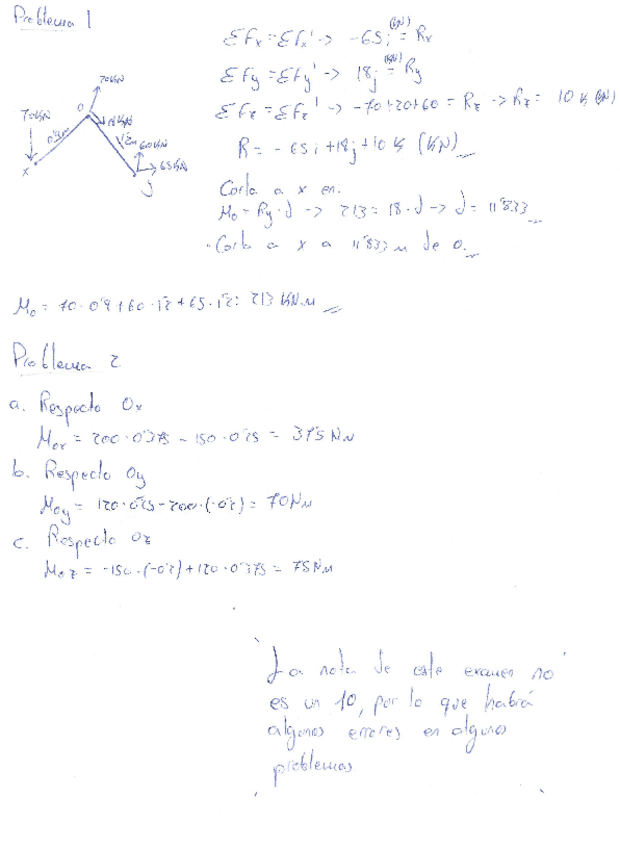 Problema 1
ΣFx = ΣFx' -> -65i (kN) = Rx
ΣFy = ΣFy' -> 18j (kN) = Ry
ΣFz = ΣFz' -> -70+20+60 = Rz -> Rz = 10 k (kN)
R = -65i +18j +10k (kN)
70kN
70kN
O
18kN
0'9m
1'2m
60kN
65kN
x
y
Corta a x en:
Mo = Ry·d -> 213 = 18·d -> d = 11'833
· Corta a x a 11'833 m de O.
Mo = 70·0'9+60·1'2+65·1'2 = 213 kN·m
Problema 2
a. Respecto Ox
Mox = 200·0'375 - 150·0'25 = 37'5 Nm
b. Respecto Oy
Moy = 120·0'25-200·(-0'2) = 70Nm
c. Respecto Oz
Moz = -150·(-0'2)+120·0'375 = 75Nm
La nota de este examen no
es un 10, por lo que habrá
algunos errores en algunos
problemas